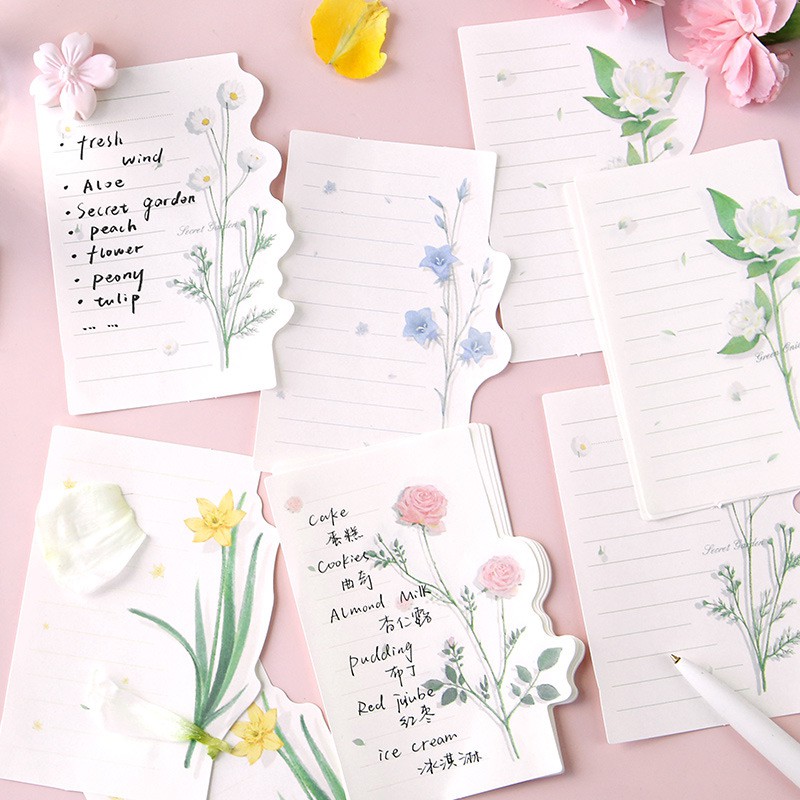 • fresh
wind
• Aloe
• Secret garden
• peach
• flower
• peony
• tulip
... ...
Secret Garden
Cake
蛋糕
Cookies
曲奇
Almond Milk
杏仁露
pudding
布丁
Red jujube
红枣
ice cream
冰淇淋
Secret Garden